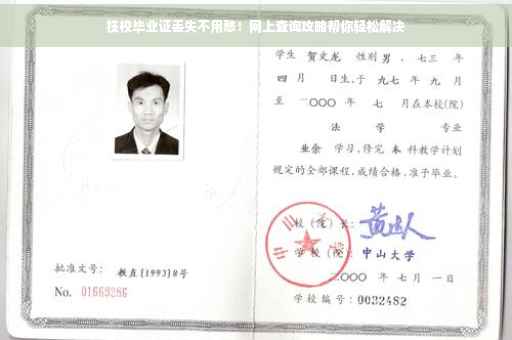 技校毕业证丢失不用愁！网上查询攻略帮你轻松解决
学生 贺文龙 性别 男 、七三 年
四 月 日生,于 九七 年 九 月
至 二〇〇〇 年 七 月在本校(院)
法 学 专业
业余 学习,修完 本 科教学计划
规定的全部课程,成绩合格,准予毕业。
校 (院) 长:
学 校 (院): 中山大学
二〇〇〇 年 七 月 一 日
学校编号: 0032482
批准文号: 教直[1993]8号
No. 01669286